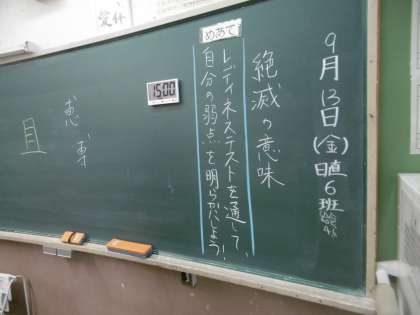 9月13日(金)日直6班
絶滅の意味
めあて
レディネステストを通して、
自分の弱点を明らかにしよう!
15:00
恵
且